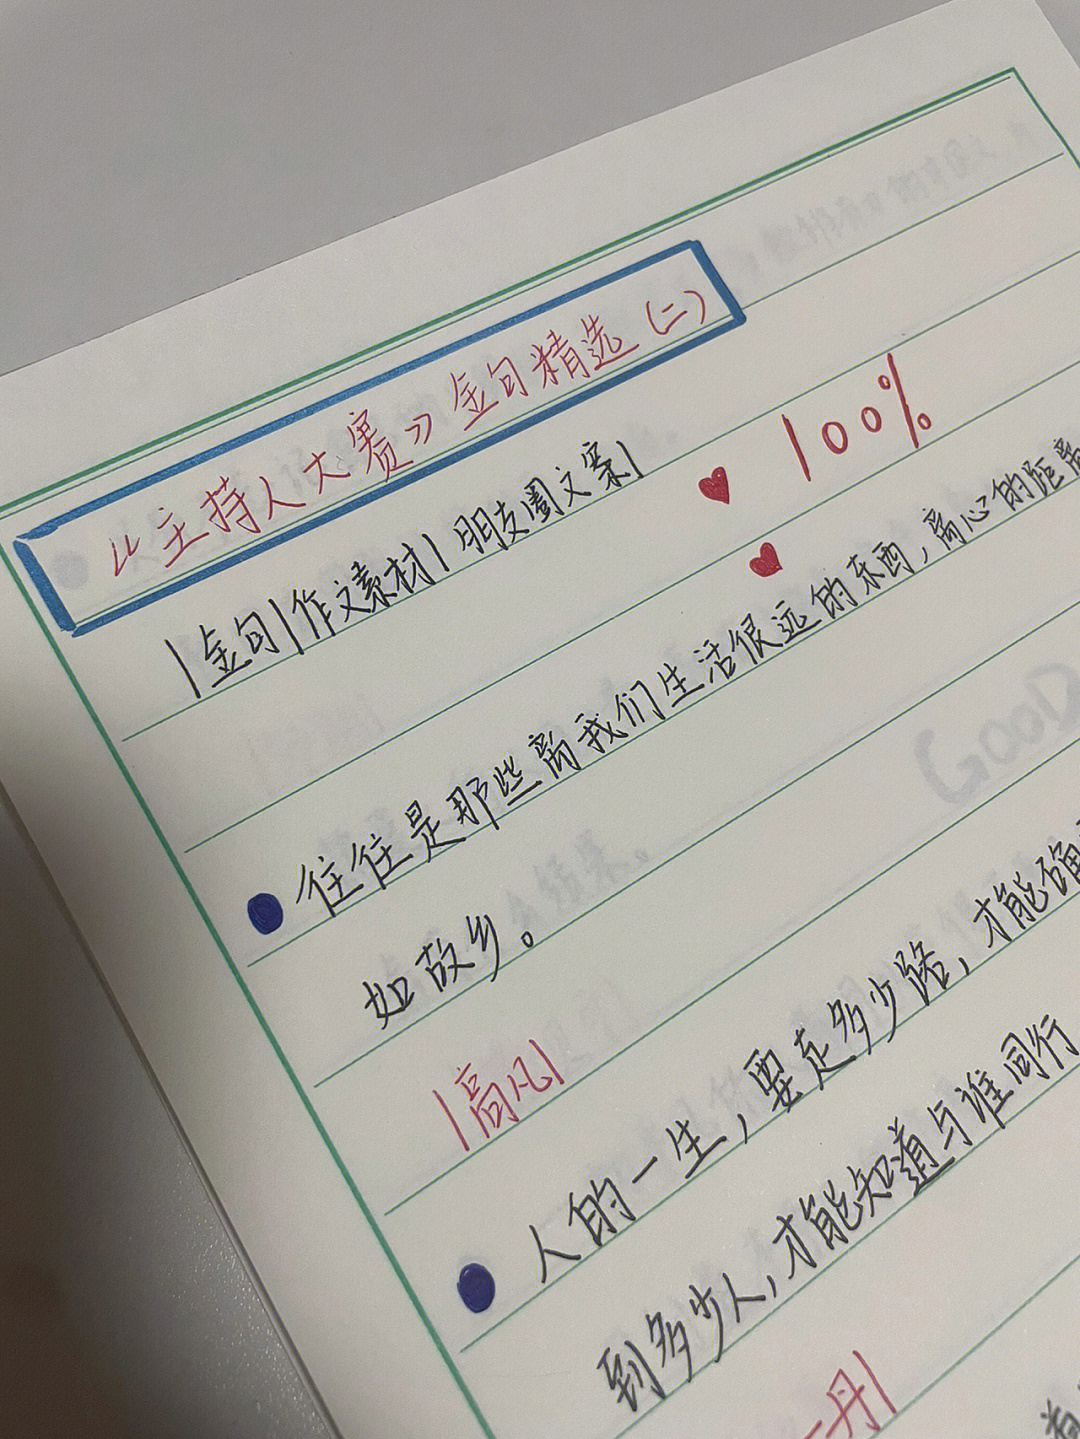 《主持人大赛》金句精选(二)
|金句|作文素材|朋友圈文案|
100%
往往是那些离我们生活很远的东西，离心的距离
如故乡。
|高凡|
人的一生，要走多少路，才能确
到多少人，才能知道与谁同行
一丹|
GOOD